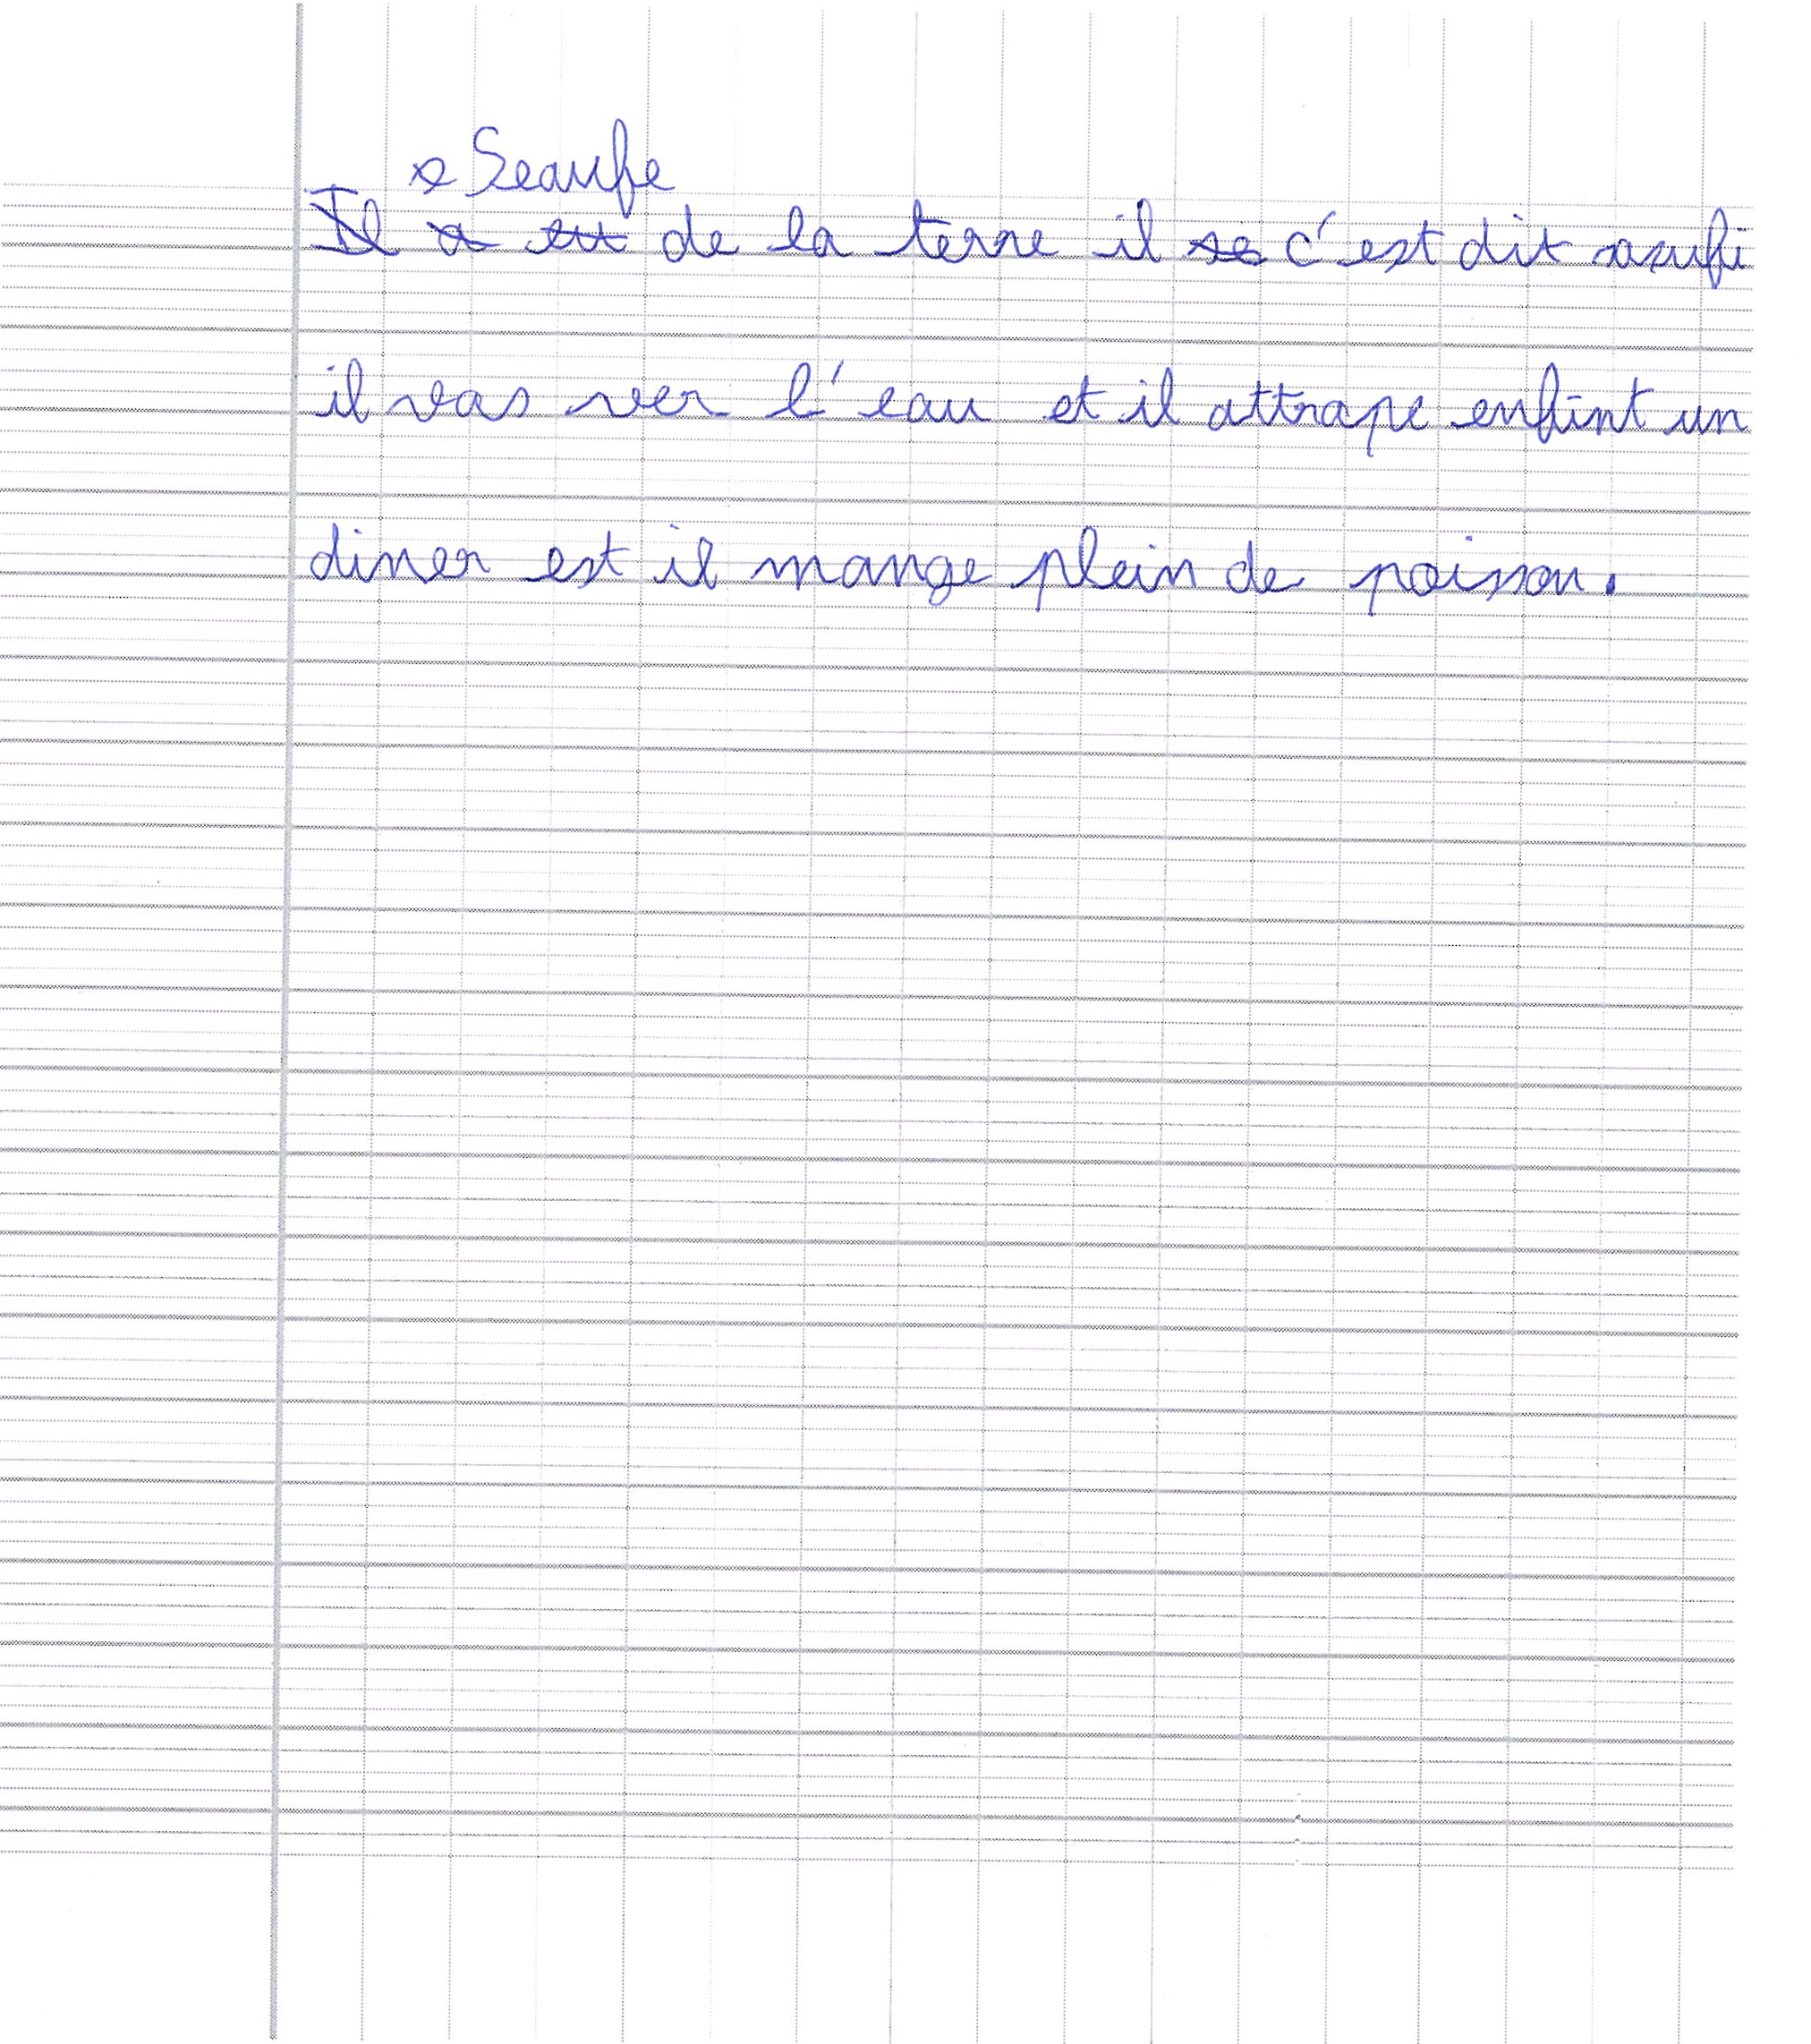 x Seaufe
Il a eu de la terre il se c'est dit asufi
il vas ver l'eau et il attrape enfint un
diner est il mange plein de poisson.